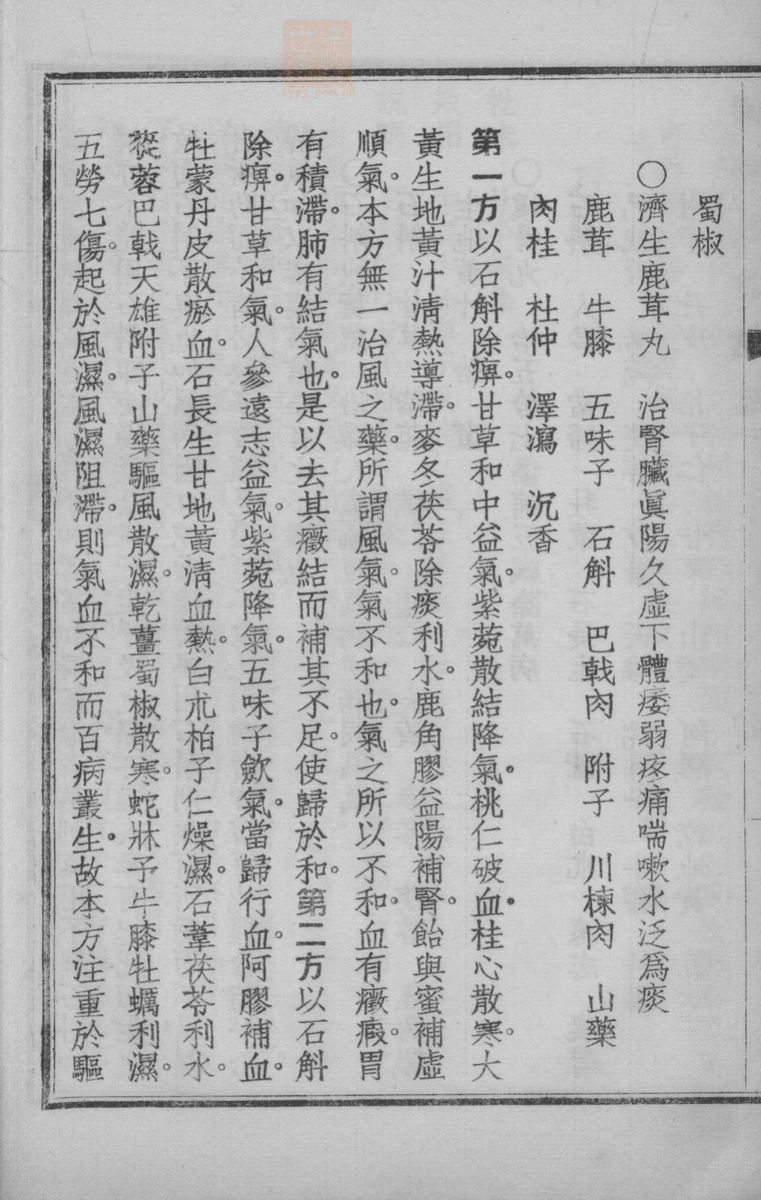 蜀椒
○濟生鹿茸丸　治腎臟眞陽久虛下體痿弱疼痛喘嗽水泛爲痰
鹿茸　牛膝　五味子　石斛　巴戟肉　附子　川楝肉　山藥
肉桂　杜仲　澤瀉　沉香
第一方以石斛除痹。甘草和中益氣。紫菀散結降氣。桃仁破血。桂心散寒。大
黃生地黃汁淸熱導滯。麥冬茯苓除痰利水。鹿角膠益陽補腎。飴與蜜補虛
順氣。本方無一治風之藥。所謂風氣。氣不和也。氣之所以不和。血有癥瘕。胃
有積滯。肺有結氣也。是以去其癥結而補其不足。使歸於和。第二方以石斛
除痹。甘草和氣。人參遠志益氣。紫菀降氣。五味子歛氣。當歸行血。阿膠補血。
牡蒙丹皮散瘀血。石長生甘地黃淸血熱。白朮柏子仁燥濕。石葦茯苓利水。
蓯蓉巴戟天雄附子山藥驅風散濕。乾薑蜀椒散寒。蛇牀子牛膝牡蠣利濕。
五勞七傷。起於風濕。風濕阻滯。則氣血不和而百病叢生。故本方注重於驅